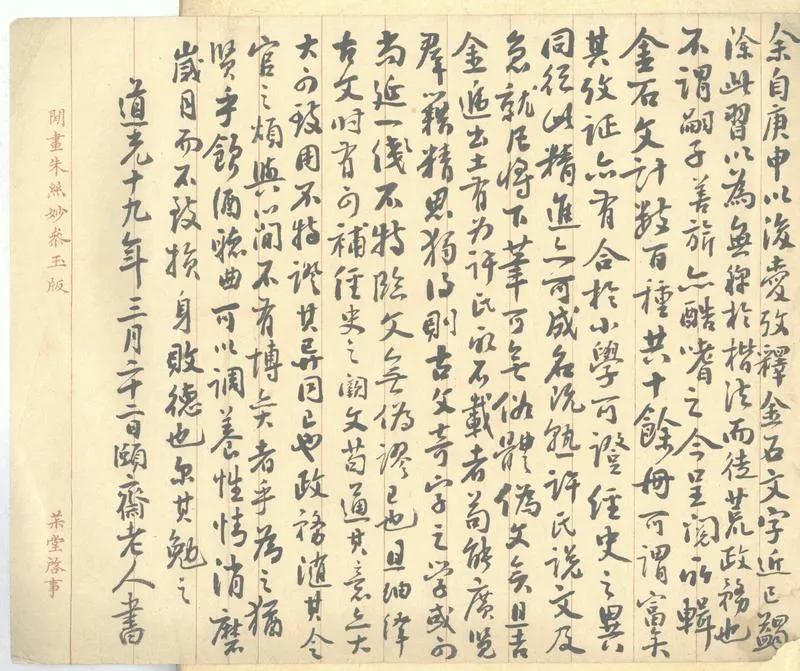 余自庚申以后爱攷釋金石文字近已蠲
除此習以為無裨於楷法而徒荒政務也
不謂嗣子善旂亦酷嗜之今呈閱所輯
金石文計数百種共十餘冊可謂富矣
其攷证亦有合於小學可證經史之異
同從此精進亦可成名既熟許氏說文及
急就居恒下筆可無俗體偽文矣且吉
金遞出土有为許氏所不載者苟能廣览
羣籍精思獨得則古文奇字之學或可
尚延一綫不特临文無偽謬已也且紬繹
古文时有可補經史之闕文苟通其意亦大
大可致用不特證其异同已也政務随其令
官之煩與閒不有博奕者乎為之猶
賢乎飲酒聽曲可以調養性情消磨
歲月而不致損身敗德也尔其勉之
道光十九年三月二十二日頤齋老人書
閒畫朱絲妙参玉版
堂啓事